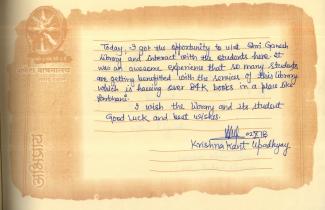 Today, I got the opportunity to visit Shri Ganesh
library and interact with the students here. It
was an awesome experience that so many students
are getting benefitted with the services of this library
which is having over 84K books in a place like
Parbhani.
I wish the library and its student
Good Luck and best wishes.
Krishna Kant Upadhyay
अभिप्राय